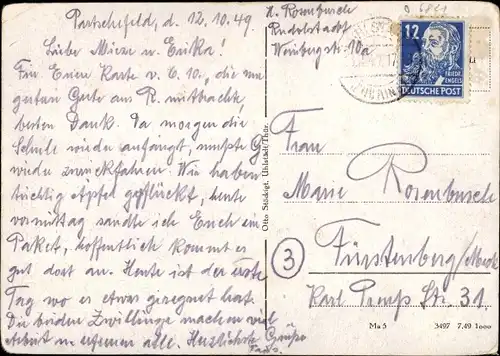 Partschefeld, d. 12.10.49.
Liebe Mieze u. Erika!
Für Eure Karte v. 6.10., die uns
gestern Gute aus R. mitbrachte,
besten Dank. Da morgen die
Schule wieder anfängt, mußte G.
wieder zurückfahren. Wir haben
tüchtig Äpfel gepflückt, heute
vormittag sandte ich Euch ein
Paket, hoffentlich kommt es
gut dort an. Heute ist der erste
Tag wo es etwas geregnet hat.
Die beiden Zwillinge machen viel
Arbeit u. uns alle. Herzlichste Grüße
Otto Stödigt, Uhlstädt/Thür.
Rosenbusch
Rudolstadt
Weinbergstr. 10a
12
FRIEDR. ENGELS
DEUTSCHE POST
Frau
Marie Rosenbusch
3
Fürstenberg/Meck
Karl Preuß Str. 31.
Ma 5 3497 7.49 1000